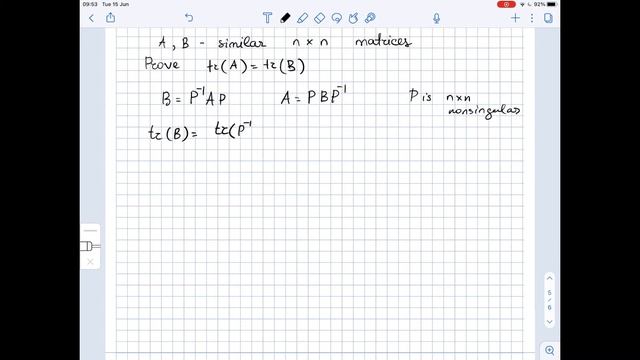 09:53 Tue 15 Jun
92%
A, B - similar n × n matrices
Prove tr(A) = tr(B)
B = P⁻¹AP A = PBP⁻¹ P is n×n
nonsingular
tr(B) = tr(P⁻¹
5
/
6